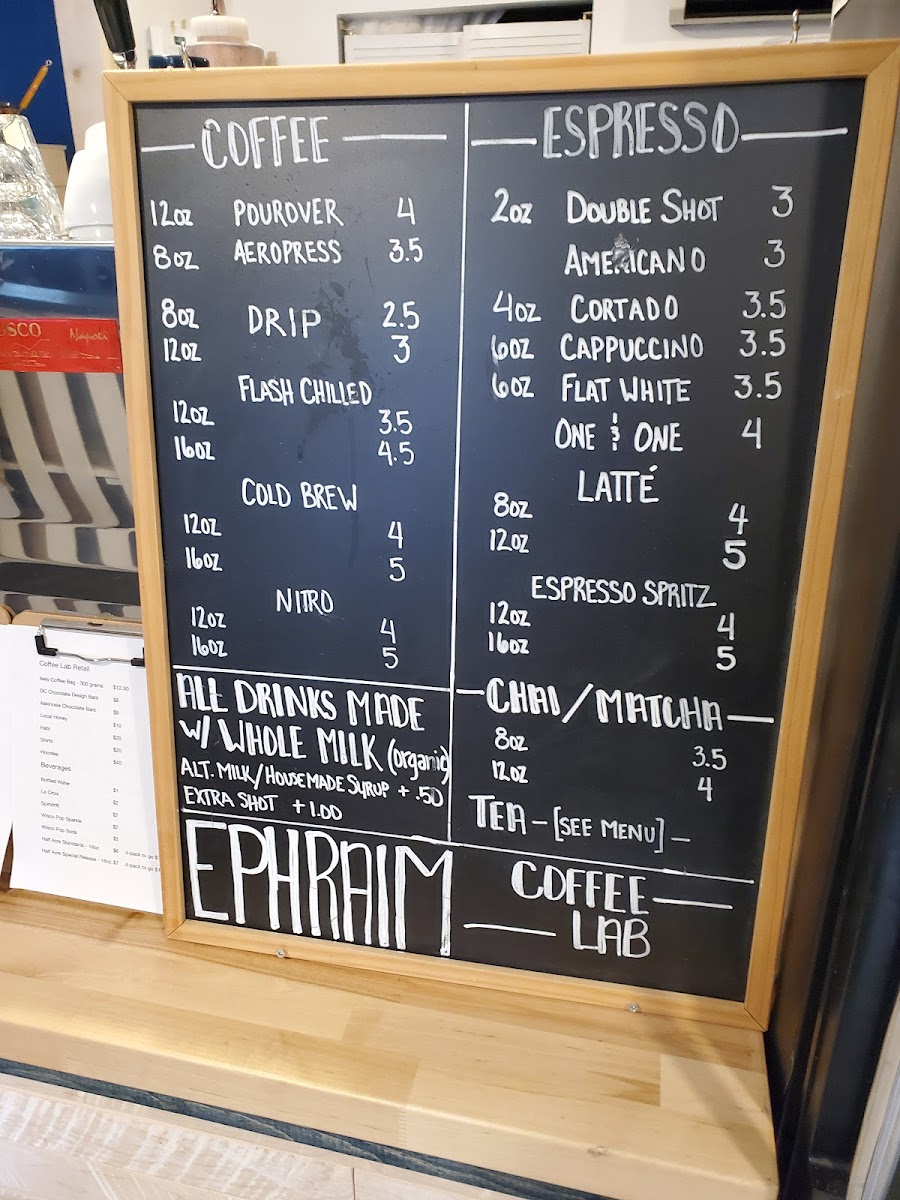 COFFEE
12oz POUROVER 4
8oz AEROPRESS 3.5
8oz DRIP 2.5
12oz 3
FLASH CHILLED
12oz 3.5
16oz 4.5
COLD BREW
12oz 4
16oz 5
NITRO
12oz 4
16oz 5
ALL DRINKS MADE
W/ WHOLE MILK (organic)
ALT. MILK/HOUSEMADE SYRUP + .50
EXTRA SHOT +1.00
EPHRAIM
ESPRESSO
2oz DOUBLE SHOT 3
AMERICANO 3
4oz CORTADO 3.5
6oz CAPPUCCINO 3.5
6oz FLAT WHITE 3.5
ONE & ONE 4
LATTÉ
8oz 4
12oz 5
ESPRESSO SPRITZ
12oz 4
16oz 5
CHAI/MATCHA
8oz 3.5
12oz 4
TEA – [SEE MENU] –
COFFEE
LAB
Napoli
Coffee Lab Retail
Coffee Bag - 300 grams $12.50
DC Chocolate Design Bars
Chocolate Bars
Local Honey $10
Hats $20
Shirts $20
Hoodies $40
Beverages
Bottled Water $1
La Croix
Spindrift $2
Wisco Pop Sparkle $2
Wisco Pop Soda $3
Half Acre Standards - 16oz $6 4-pack to go
Half Acre Special Release - 16oz $7 4-pack to go